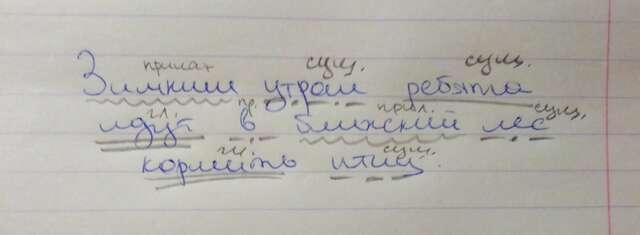 прилаг. сущ. сущ.
Зимним утром ребята
гл. пр. прил. сущ.
идут в близкий лес
гл. сущ.
кормить птиц.